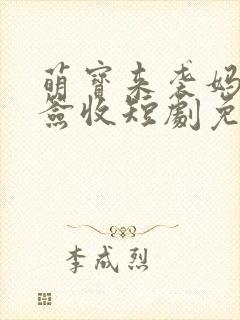 萌宝来袭妈
签收短剧免
李成烈